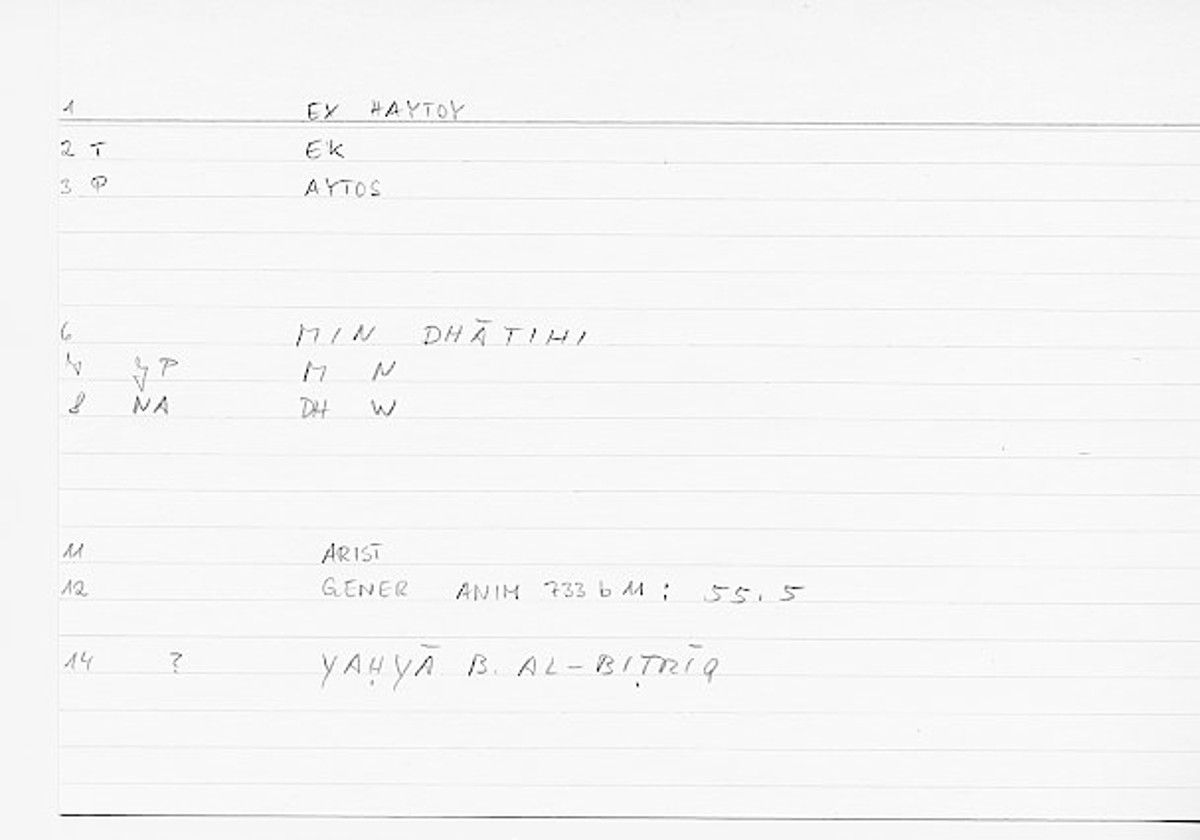 1 EX HAYTOY
2 T EK
3 P AYTOS
6 MIN DHĀTIHI
7 JP M N
8 NA DH W
11 ARIST
12 GENER ANIM 733 b 11 : 55.5
14 ? YAḤYĀ B. AL-BIṬRĪQ